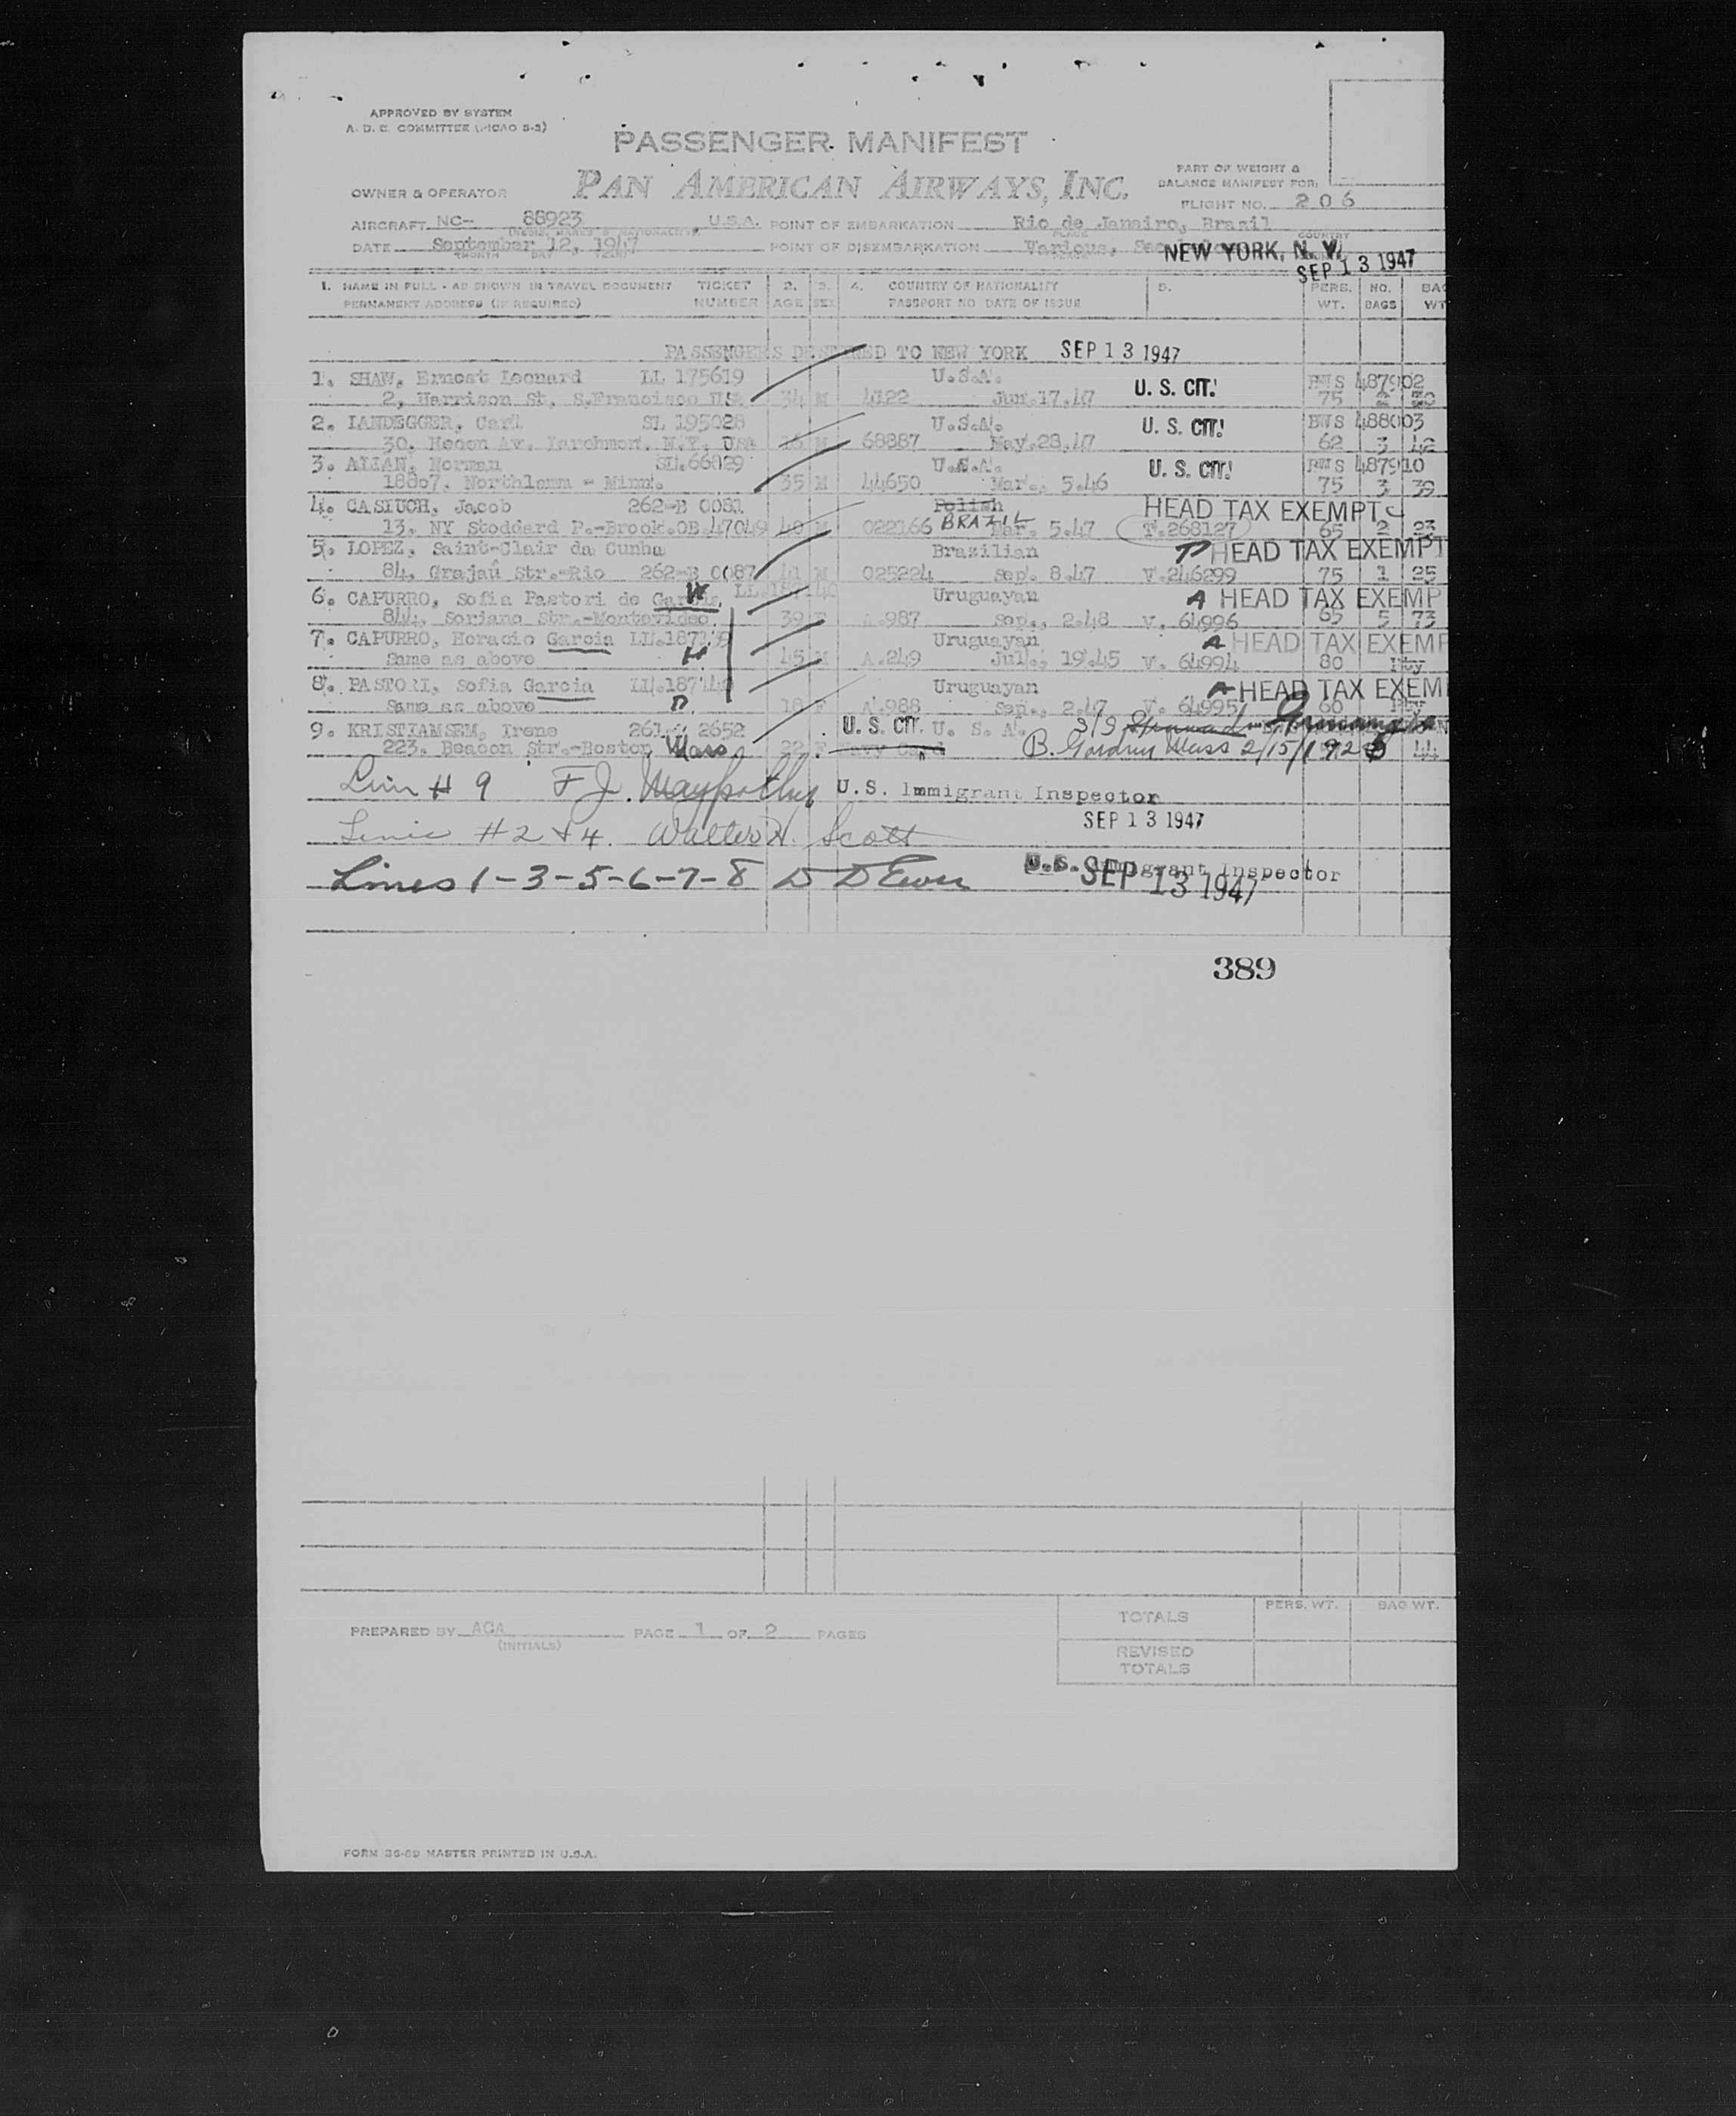 APPROVED BY SYSTEM
A. D. C. COMMITTEE (ICAO S-2)
PASSENGER MANIFEST
PAN AMERICAN AIRWAYS, INC.
PART OF WEIGHT &
BALANCE MANIFEST FOR:
OWNER & OPERATOR
FLIGHT NO. 206
AIRCRAFT NC- 88923 U.S.A. POINT OF EMBARKATION Rio de Janairo, Brazil
DATE September 12, 1947 POINT OF DISEMBARKATION Various,
MONTH DAY YEAR
NEW YORK, N. Y.
SEP 13 1947
1. NAME IN FULL - AS SHOWN IN TRAVEL DOCUMENT TICKET 2. 3. 4. COUNTRY OF NATIONALITY 5. PERS. NO. BAG
PERMANENT ADDRESS (IF REQUIRED) NUMBER AGE SEX PASSPORT NO DATE OF ISSUE WT. BAGS WT
PASSENGERS DESTINED TO NEW YORK SEP 13 1947
1. SHAW, Ernest Leonard LL 175619 U.S.A. U. S. CIT. 487902
2, Harrison St. S.Francisco 34 M 4122 Jun.17.47 75 2 30
2. LANDEGGER, Carl SL 195028 U.S.A. U. S. CIT. 488003
30. Av. Larchmon. N.Y. USA 16 M 68887 May.28.47 62 3 42
3. ALLAN, Norman SL.66029 U.S.A. U. S. CIT. 487910
18807. - Minn. 35 M 44650 Mar., 5.46 75 3 39
4. CASIUCH, Jacob 262-B 0081 Polish BRAZIL HEAD TAX EXEMPT
13. NY Stoddard P.-Brook.OB.47049 40 M 022166 Mar. 5.47 T.268127 65 2 23
5. LOPEZ, Saint-Clair da Cunha Brazilian HEAD TAX EXEMPT
84, Grajaú Str.-Rio 262-B 0087 41 M 025224 Sep. 8.47 V.246299 75 1 25
6. CAPURRO, Sofia Pastori de Garcia, W Uruguayan A HEAD TAX EXEMP
844, Soriano Str.-Montevideo. 39 F A.987 Sep., 2.48 V. 64996 65 5 73
7. CAPURRO, Horacio Garcia LL.187139 Uruguayan A HEAD TAX EXEMP
Same as above H 45 M A.249 Jul., 19.45 V. 64994 80
8. PASTORI, Sofia Garcia Uruguayan A HEAD TAX EXEM
Same as above D. 18 F A.988 Sep., 2.47 V. 64995 60
9. KRISTIAMSEM, Irene 2652 U. S. CIT. U. S. A. 313
223. Beacon Str.-Boston, Mass 22 F Navy Card B. Gardner Mass 2/15/1925 44
Line # 9 F J. U.S. Immigrant Inspector
SEP 13 1947
Lines #2 & 4. Walter H. Scott
Lines 1-3-5-6-7-8 D D U.S. Immigrant Inspector
SEP 13 1947
389
PREPARED BY ACA PAGE 1 OF 2 PAGES
(INITIALS)
PERS. WT. BAG WT.
TOTALS
REVISED
TOTALS
FORM MASTER PRINTED IN U.S.A.